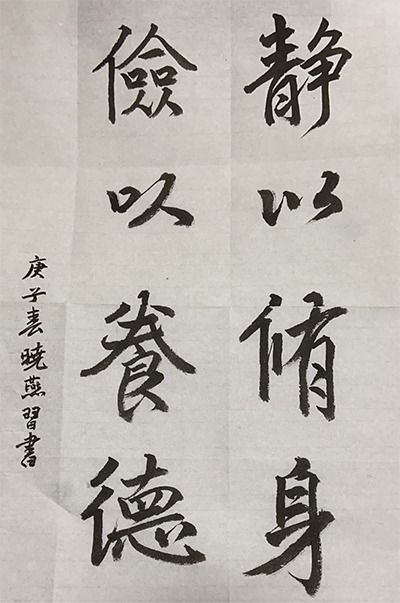 静以脩身
儉以養德
庚子春曉燕習書